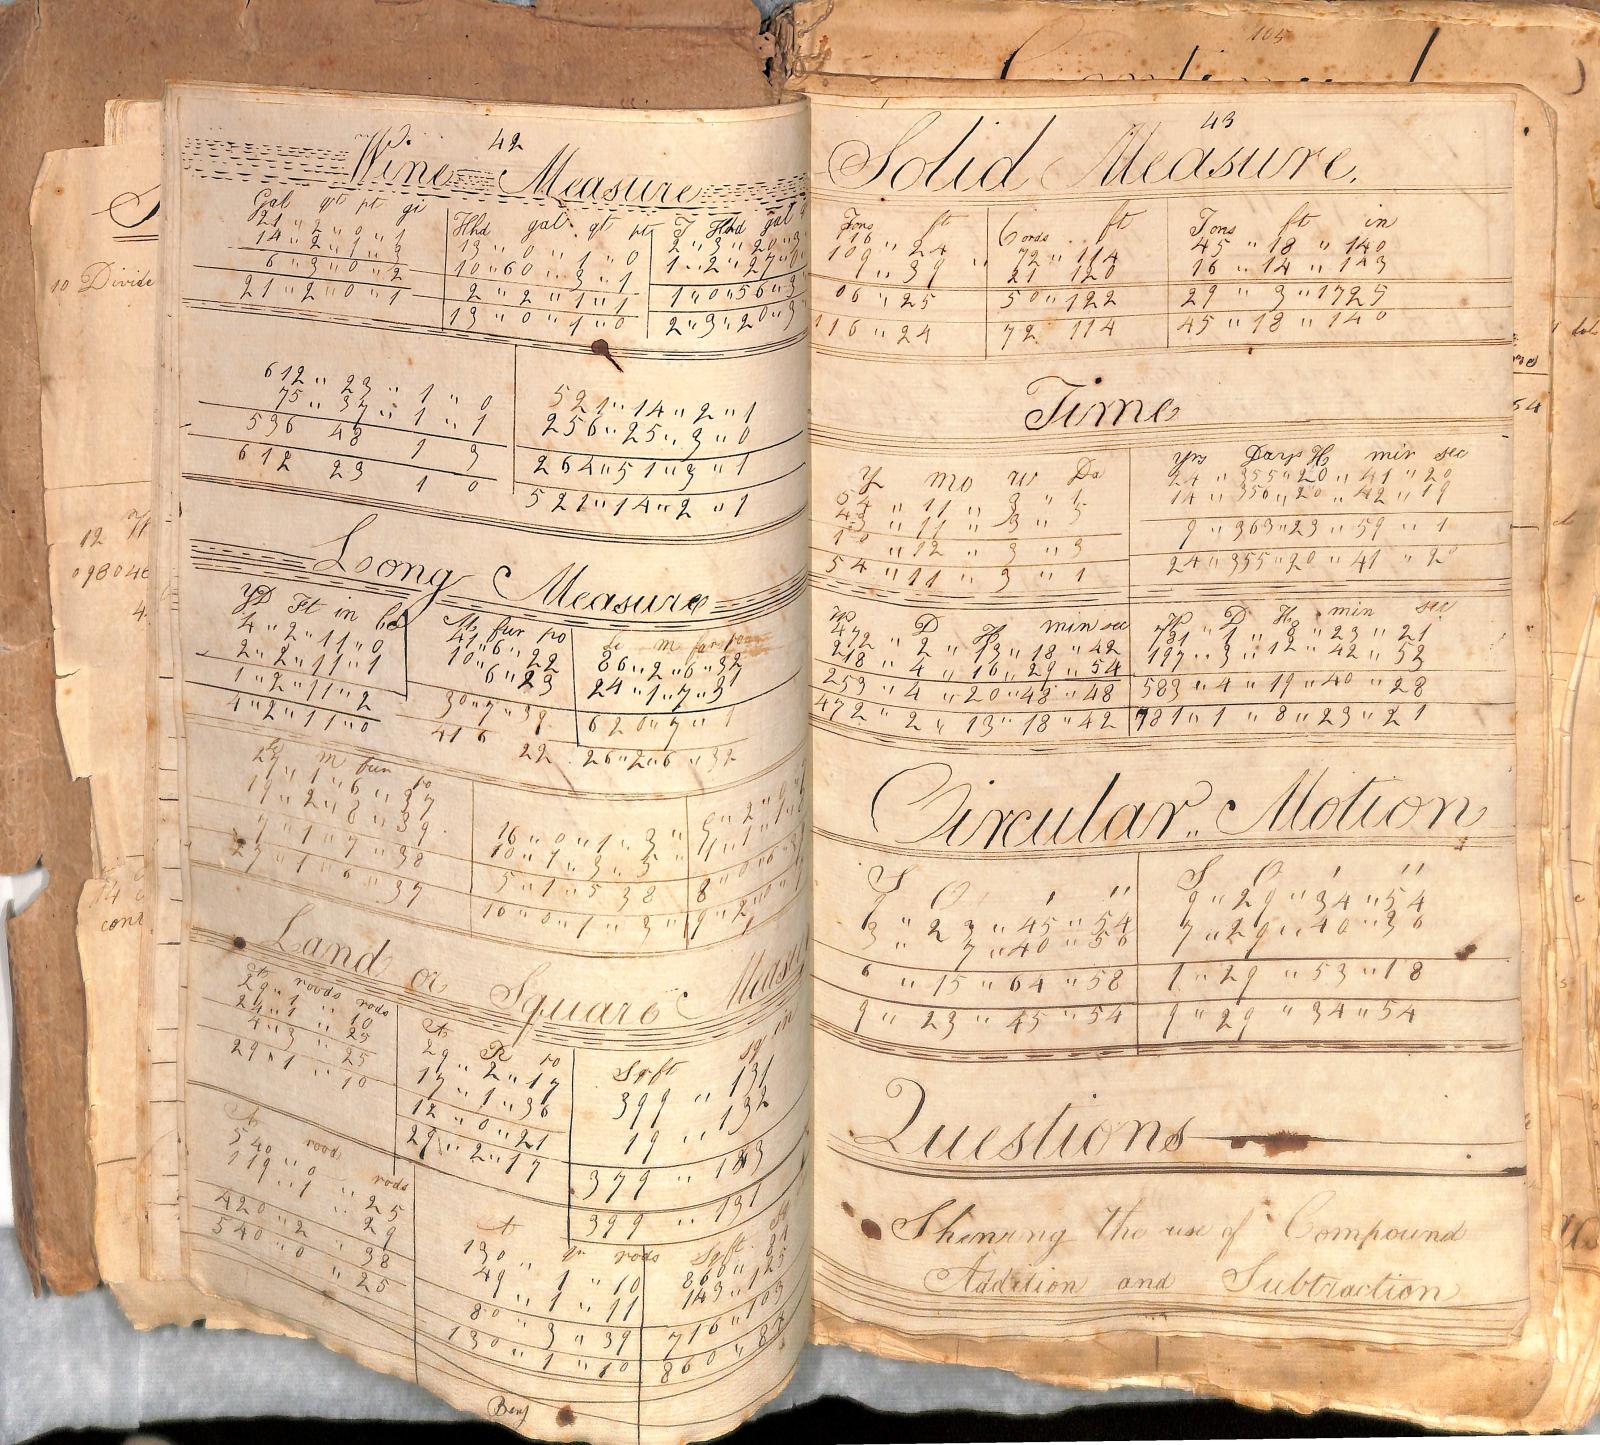 42
Wine Measure
Gal qt pt gi
21 " 2 " 0 " 1
14 " 2 " 1 " 3
6 " 3 " 0 " 2
21 " 2 " 0 " 1
Hhd gal qt pt
13 " 0 " 1 " 0
10 " 60 " 3 " 1
2 " 2 " 1 " 1
13 " 0 " 1 " 0
T Hhd gal
2 " 3 " 20 " 3
1 " 2 " 27 " 0
1 " 0 " 56 " 3
2 " 3 " 20 " 3
612 " 23 " 1 " 0
75 " 37 " 1 " 1
536 48 1 3
612 23 1 0
521 " 14 " 2 " 1
256 " 25 " 3 " 0
264 " 51 " 3 " 1
521 " 14 " 2 " 1
Long Measure
YD Ft in bc
4 " 2 " 11 " 0
2 " 2 " 11 " 1
1 " 2 " 11 " 2
4 " 2 " 11 " 0
M fur po
41 " 6 " 22
10 " 6 " 23
30 " 7 " 39
41 6 22
Le m fur
86 " 2 " 6 " 32
24 " 1 " 7 " 31
62 0 " 7 " 1
26 " 2 " 6 " 32
Le m fur po
27 " 1 " 6 " 37
19 " 2 " 8 " 39
7 " 1 " 7 " 38
27 " 1 " 6 " 37
16 " 0 " 1 " 3 "
10 " 1 " 3 " 5 "
5 " 1 " 5 38
10 " 0 " 1 " 3 "
Land or Square Measu
A roods rods
29 " 1 " 10
24 " 1 " 25
4 " 3 " 25
29 " 1 " 10
A R ro
29 " 2 " 17
17 " 1 " 36
12 " 0 " 21
29 " 2 " 17
Sqft sq in
399 " 131
19 " 132
379 " 143
399 " 131
A rood rods
540 " 0 " 25
119 " 1 " 29
420 " 2 " 38
540 " 0 " 25
A qr rods
130 " 1 " 10
49 " 1 " 11
80 " 3 " 39
130 " 1 " 10
Sqft sq
860 " 84
143 " 125
716 " 103
860 " 84
Benj
43
Solid Measure.
Tons ft
116 " 24
109 " 39 "
06 " 25
116 " 24
Cords ft
72 " 114
21 120
50 " 122
72 114
Tons ft in
45 " 18 " 140
16 " 14 " 143
29 " 3 " 1725
45 " 18 " 140
Time
Y mo w Da
54 " 11 " 3 " 1
43 " 11 " 3 " 5
10 " 12 " 3 " 3
54 " 11 " 3 " 1
Yrs Days H min sec
24 " 355 " 20 " 41 " 20
14 " 356 " 20 " 42 " 19
9 " 363 " 23 " 59 " 1
24 " 355 " 20 " 41 " 20
W D H min sec
472 " 2 " 13 " 18 " 42
218 " 4 " 16 " 29 " 54
253 " 4 " 20 " 48 " 48
472 " 2 " 13 " 18 " 42
W D H min sec
781 " 1 " 8 " 23 " 21
197 " 3 " 12 " 42 " 53
583 " 4 " 19 " 40 " 28
781 " 1 " 8 " 23 " 21
Circular Motion
S O ' ''
9 " 23 " 45 " 54
3 " 7 " 40 " 56
6 " 15 " 64 " 58
9 " 23 " 45 " 54
S O ' ''
9 " 29 " 34 " 54
7 " 29 " 40 " 36
1 " 29 " 53 " 18
9 " 29 " 34 " 54
Questions
Shewing the use of Compound
Addition and Subtraction
105
10 Divide
12
09804
4.
cont
54